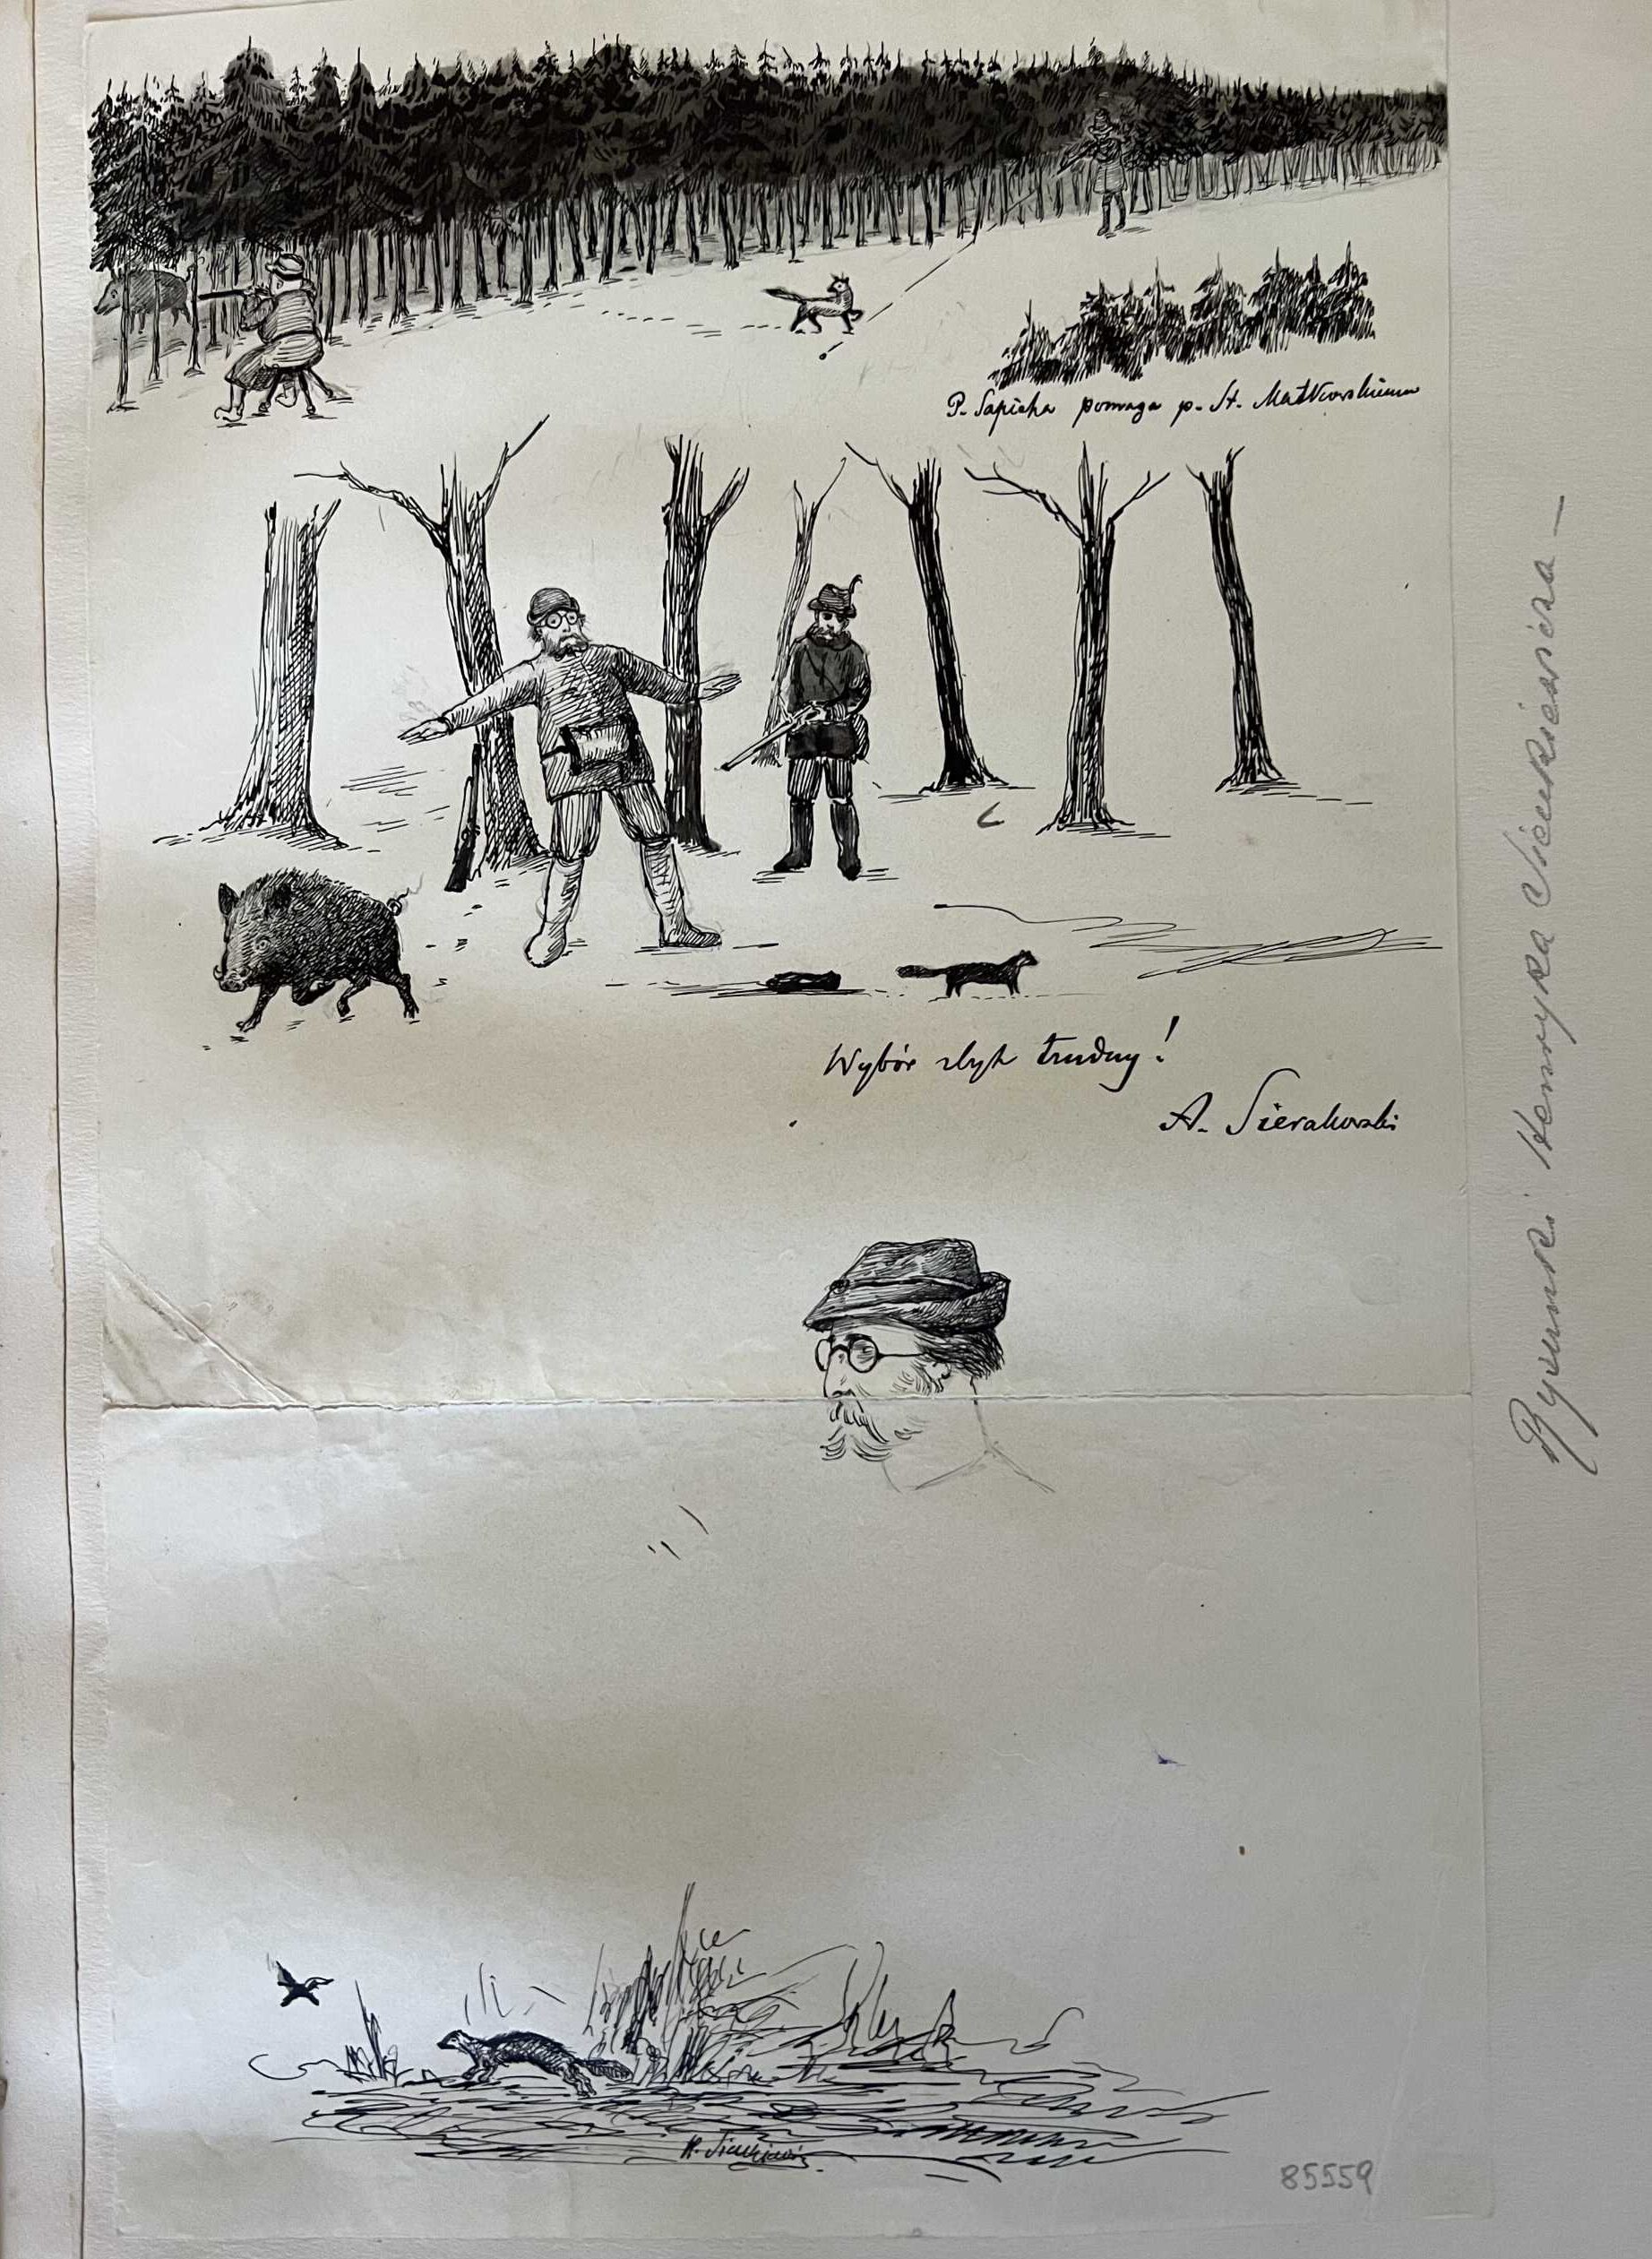 P. Sapieha pomaga p. St. Matkowskiemu
Wybór zbyt trudny!
A. Sierakowski
H. Sienkiewicz
85559
Rysunki Henryka Sienkiewicza –